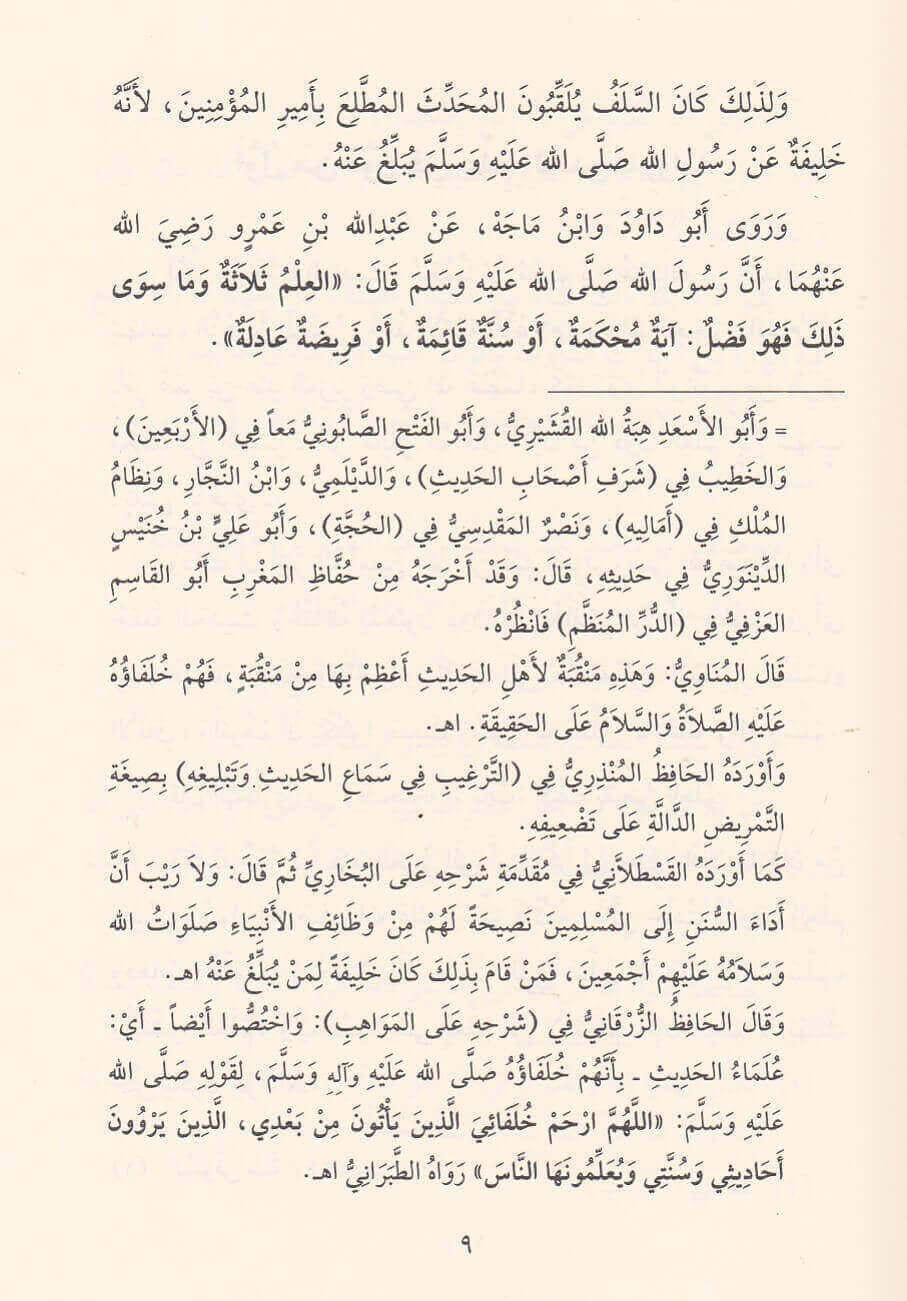 وَلِذَلِكَ كَانَ السَّلَفُ يُلَقِّبُونَ المُحَدِّثَ المُطَّلِعَ بِأَمِيرِ المُؤْمِنِينَ، لأَنَّهُ
خَلِيفَةٌ عَنْ رَسُولِ الله صَلَّى الله عَلَيْهِ وَسَلَّمَ يُبَلِّغُ عَنْهُ.
وَرَوَى أَبُو دَاوُدَ وَابْنُ مَاجَهْ، عَنْ عَبْدِالله بْنِ عَمْرٍو رَضِيَ الله
عَنْهُمَا، أَنَّ رَسُولَ الله صَلَّى الله عَلَيْهِ وَسَلَّمَ قَالَ: «العِلْمُ ثَلاَثَةٌ وَمَا سِوَى
ذَلِكَ فَهُوَ فَضْلٌ: آيَةٌ مُحْكَمَةٌ، أَوْ سُنَّةٌ قَائِمَةٌ، أَوْ فَرِيضَةٌ عَادِلَةٌ».
= وَأَبُو الأَسْعَدِ هِبَةُ الله القُشَيْرِيُّ، وَأَبُو الفَتْحِ الصَّابُونِيُّ مَعاً فِي (الأَرْبَعِينَ)،
وَالخَطِيبُ فِي (شَرَفِ أَصْحَابِ الحَدِيثِ)، وَالدَّيْلَمِيُّ، وَابْنُ النَّجَّارِ، وَنِظَامُ
المُلْكِ فِي (أَمَالِيهِ)، وَنَصْرٌ المَقْدِسِيُّ فِي (الحُجَّةِ)، وَأَبُو عَلِيٍّ بْنُ خُنَيْسٍ
الدِّيْنَوَرِيُّ فِي حَدِيثِهِ، قَالَ: وَقَدْ أَخْرَجَهُ مِنْ حُفَّاظِ المَغْرِبِ أَبُو القَاسِمِ
العَزْفِيُّ فِي (الدُّرِّ المُنَظَّمِ) فَانْظُرْهُ.
قَالَ المُنَاوِيُّ: وَهَذِهِ مَنْقُبَةٌ لأَهْلِ الحَدِيثِ أَعْظِمْ بِهَا مِنْ مَنْقُبَةٍ، فَهُمْ خُلَفَاؤُهُ
عَلَيْهِ الصَّلاَةُ وَالسَّلاَمُ عَلَى الحَقِيقَةِ. اهـ.
وَأَوْرَدَهُ الحَافِظُ المُنْذِرِيُّ فِي (التَّرْغِيبِ فِي سَمَاعِ الحَدِيثِ وَتَبْلِيغِهِ) بِصِيغَةِ
التَّمْرِيضِ الدَّالَّةِ عَلَى تَضْعِيفِهِ.
كَمَا أَوْرَدَهُ القَسْطَلاَّنِيُّ فِي مُقَدِّمَةِ شَرْحِهِ عَلَى البُخَارِيِّ ثُمَّ قَالَ: وَلاَ رَيْبَ أَنَّ
أَدَاءَ السُّنَنِ إِلَى المُسْلِمِينَ نَصِيحَةً لَهُمْ مِنْ وَظَائِفِ الأَنْبِيَاءِ صَلَوَاتُ الله
وَسَلاَمُهُ عَلَيْهِمْ أَجْمَعِينَ، فَمَنْ قَامَ بِذَلِكَ كَانَ خَلِيفَةً لِمَنْ يُبَلِّغُ عَنْهُ اهـ.
وَقَالَ الحَافِظُ الزُّرْقَانِيُّ فِي (شَرْحِهِ عَلَى المَوَاهِبِ): وَاخْتُصُّوا أَيْضاً ـ أَيْ:
عُلَمَاءُ الحَدِيثِ ـ بِأَنَّهُمْ خُلَفَاؤُهُ صَلَّى الله عَلَيْهِ وَآلِهِ وَسَلَّمَ، لِقَوْلِهِ صَلَّى الله
عَلَيْهِ وَسَلَّمَ: «اللَّهُمَّ ارْحَمْ خُلَفَائِيَ الَّذِينَ يَأْتُونَ مِنْ بَعْدِي، الَّذِينَ يَرْوُونَ
أَحَادِيثِي وَسُنَّتِي وَيُعَلِّمُونَهَا النَّاسَ» رَوَاهُ الطَّبَرَانِيُّ اهـ.
٩